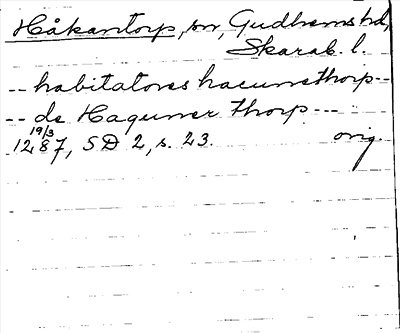 Håkantorp, sn, Gudhems hd,
Skarab. l.
-- habitatores hacunnethorp --
-- de Hagunner thorp ---
19/3
1287, SD 2, s. 23. orig.